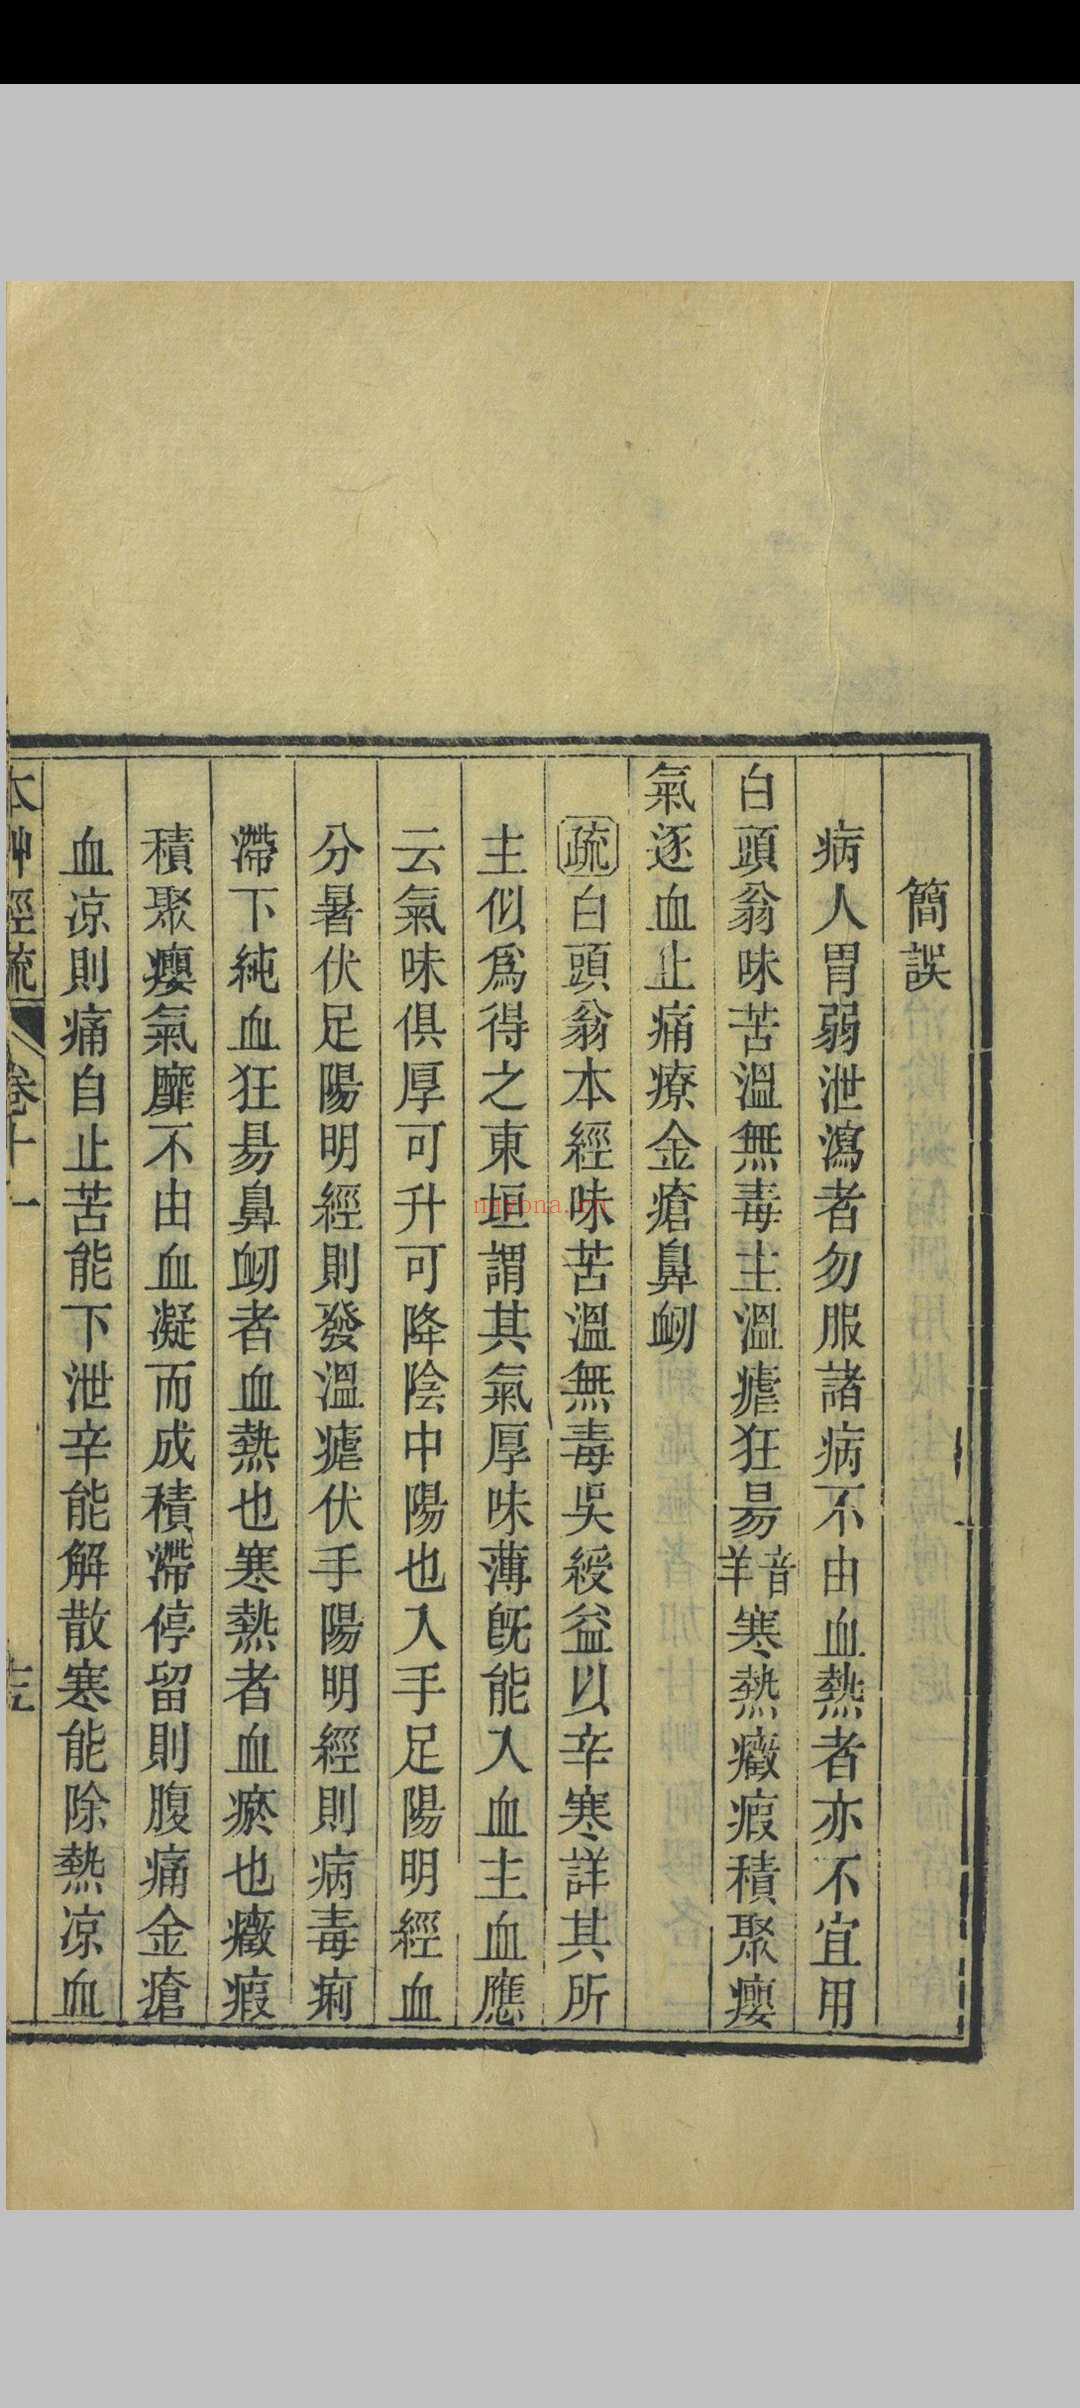 簡誤
病人胃弱泄瀉者勿服諸病不由血熱者亦不宜用
白頭翁味苦溫無毒主溫瘧狂昜音羊寒熱癥瘕積聚癭
氣逐血止痛療金瘡鼻衂
疏白頭翁本經味苦溫無毒吳綬益以辛寒詳其所
主似爲得之東垣謂其氣厚味薄旣能入血主血應
云氣味俱厚可升可降陰中陽也入手足陽明經血
分暑伏足陽明經則發溫瘧伏手陽明經則病毒痢
滯下純血狂昜鼻衂者血熱也寒熱者血瘀也癥瘕
積聚癭氣靡不由血凝而成積滯停留則腹痛金瘡
血凉則痛自止苦能下泄辛能解散寒能除熱凉血
本艸經疏 卷十一